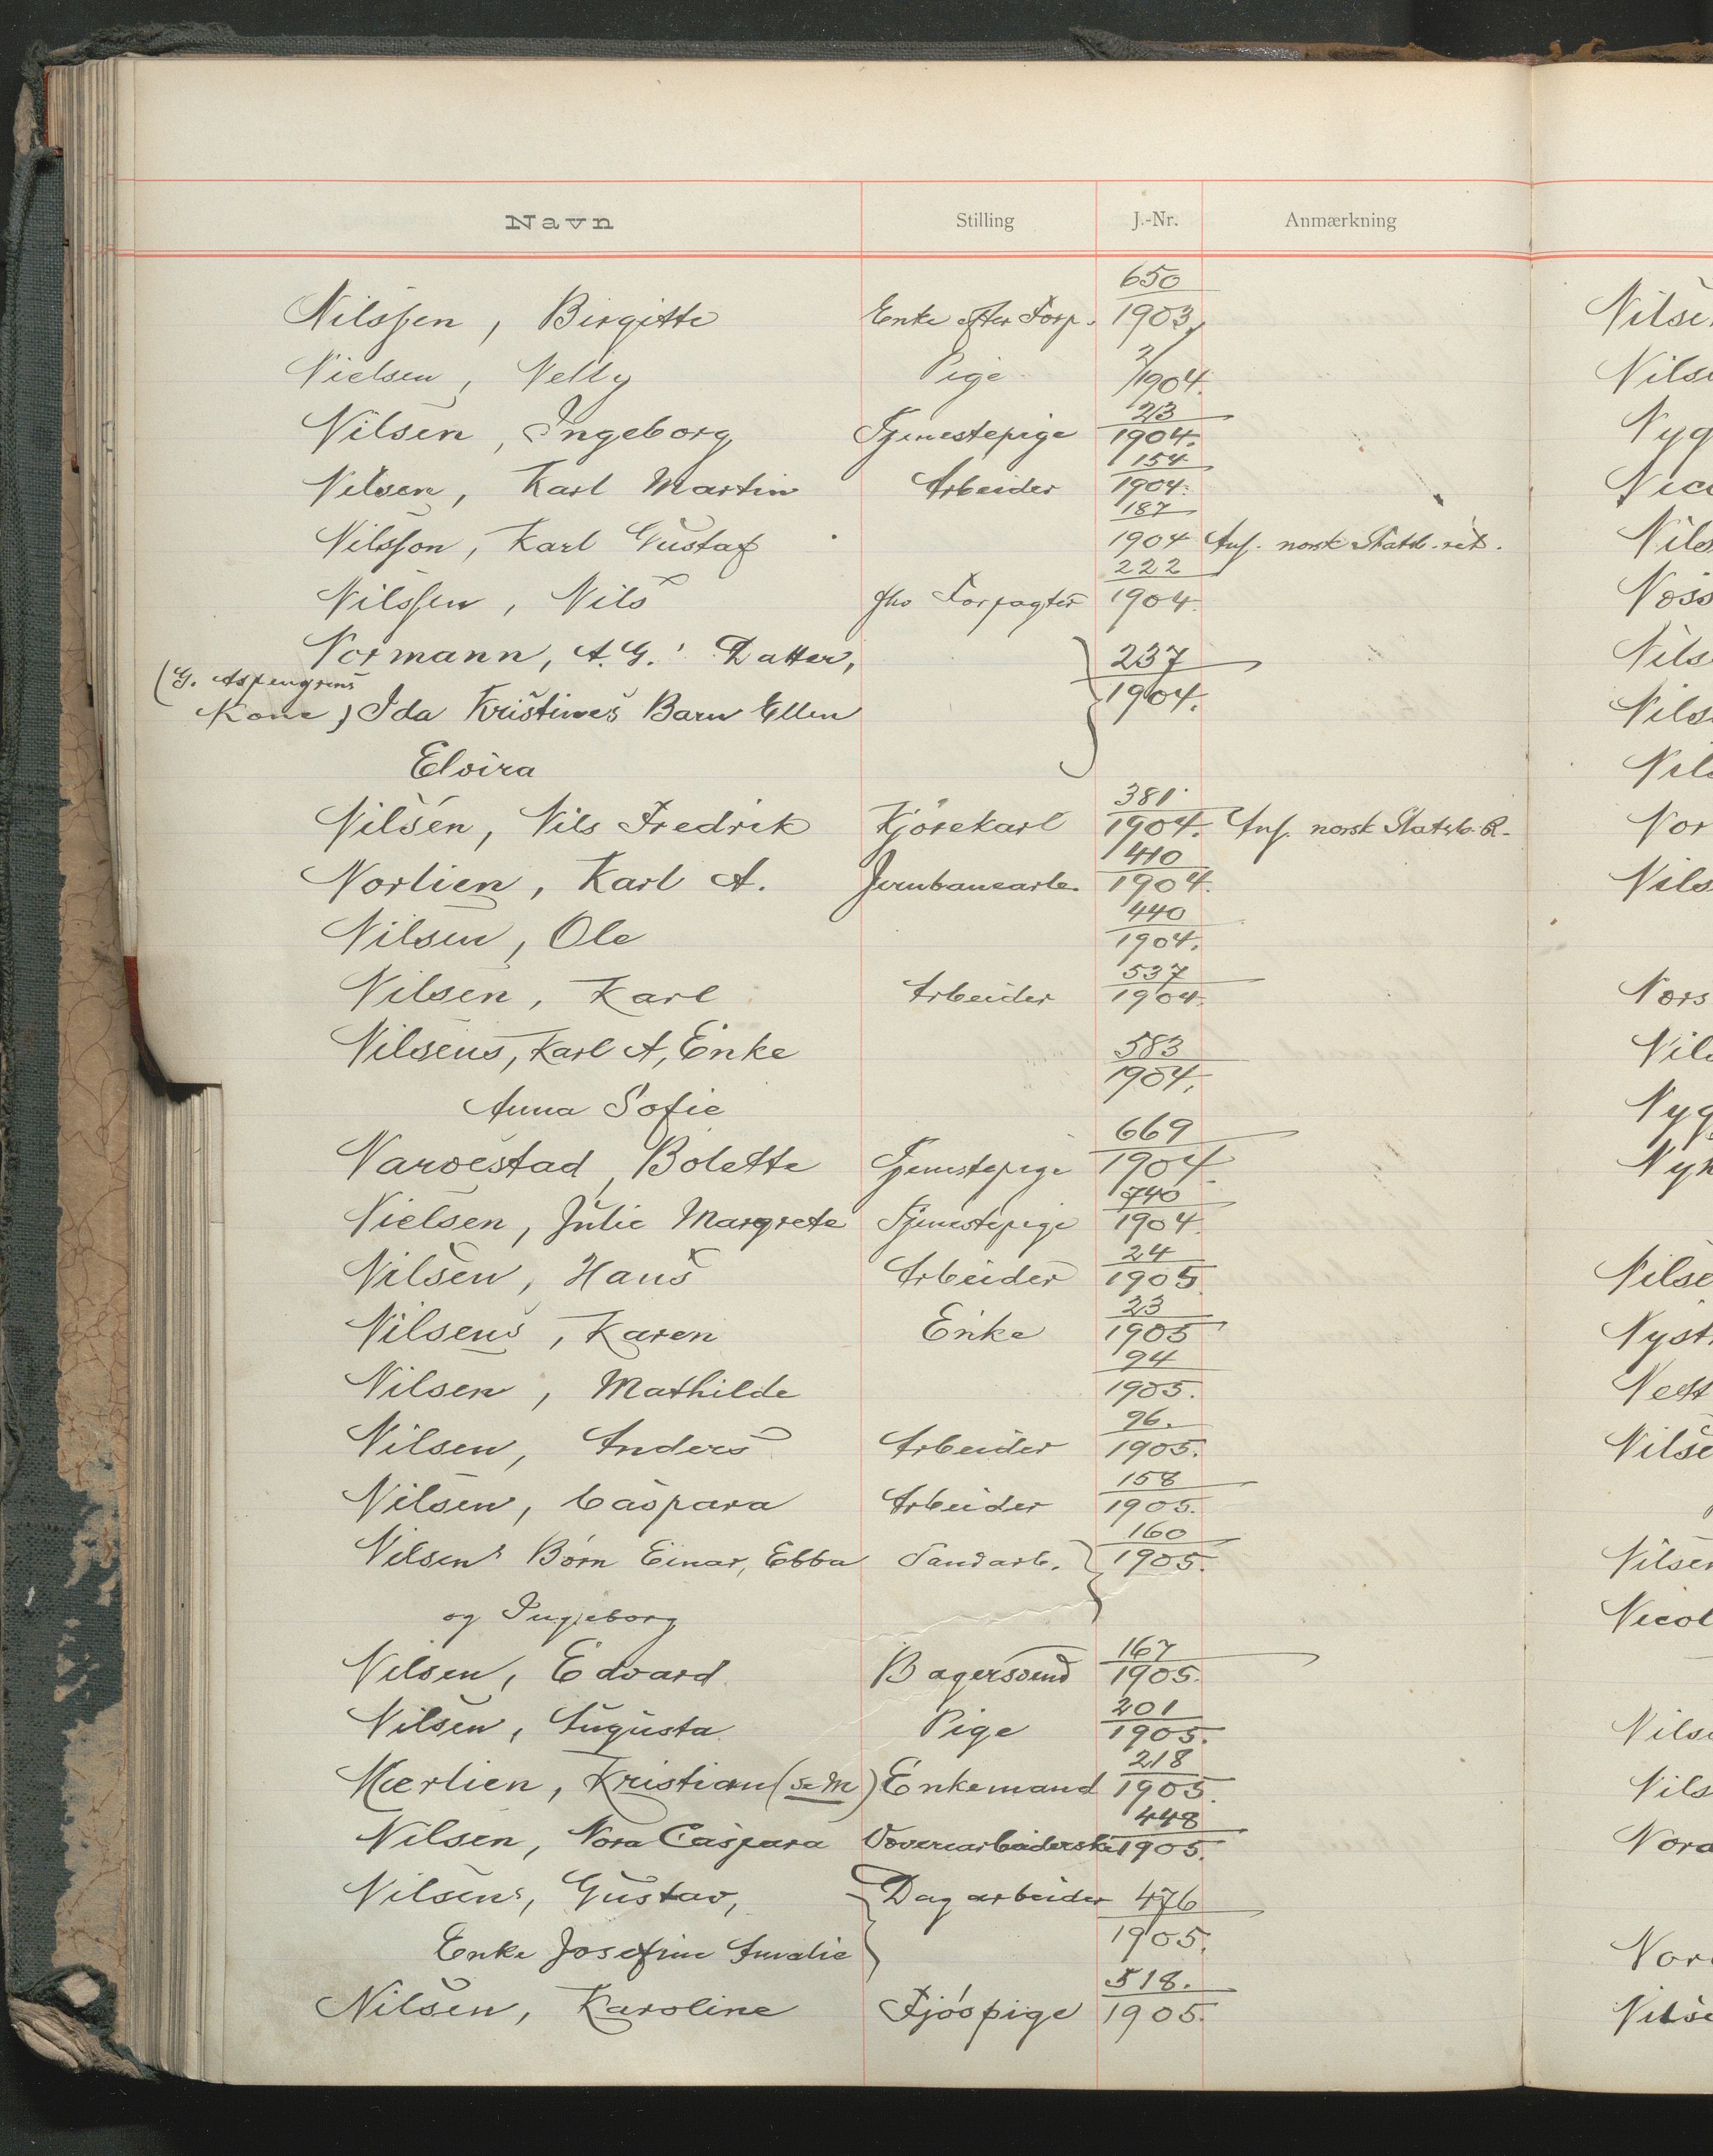 Navn Stilling J.-Nr. Anmærkning
Nilssen, Birgitte Enke efter Forp. 650/1903
Nielsen, Nelly Pige 2/1904.
Nilsen, Ingeborg Tjenestepige 23/1904.
Nilsen, Karl Martin Arbeider 154/1904.
Nilsson, Karl Gustaf 187/1904 Anf. norsk Statsb.ret.
Nilssen, Nils fhv Forpagter 222/1904.
Normann, A. G.' Datter, 237/1904.
(G. Aspengrens
Kone) Ida Kristines Barn Ellen
Elvira
Nilsen, Nils Fredrik Kjörekarl 381/1904. Anf. norsk Statsb. R.
Norlien, Karl A. Jernbanearb. 410/1904.
Nilsen, Ole 440/1904.
Nilsen, Karl Arbeider 537/1904.
Nilsens, Karl A, Enke 583/1904.
Anna Sofie
Narvestad, Bolette Tjenestepige 669/1904.
Nielsen, Julie Margrete Tjenestepige 740/1904.
Nilsen, Hans Arbeider 24/1905
Nilsens, Karen Enke 23/1905
Nilsen, Mathilde 94/1905.
Nilsen, Anders Arbeider 96./1905.
Nilsen, Caspara Arbeider 158/1905.
Nilsens Børn Einar, Ebba Sandarb. 160/1905.
og Ingeborg
Nilsen, Edvard Bagersvend 167/1905.
Nilsen, Augusta Pige 201/1905.
Nærlien, Kristian (se M) Enkemand 218/1905.
Nilsen, Nora Caspara Væveriarbeiderske 448/1905.
Nilsens, Gustav, Dagarbeider 476/1905.
Enke Josefine Amalie
Nilsen, Karoline Fjöspige 518./1905.